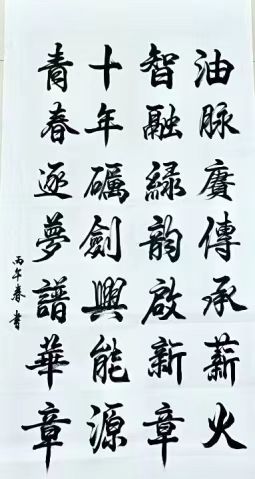 油脉赓傳承薪火
智融緑韵啟新章
十年礪劍興能源
青春逐夢譜華章
丙午春書